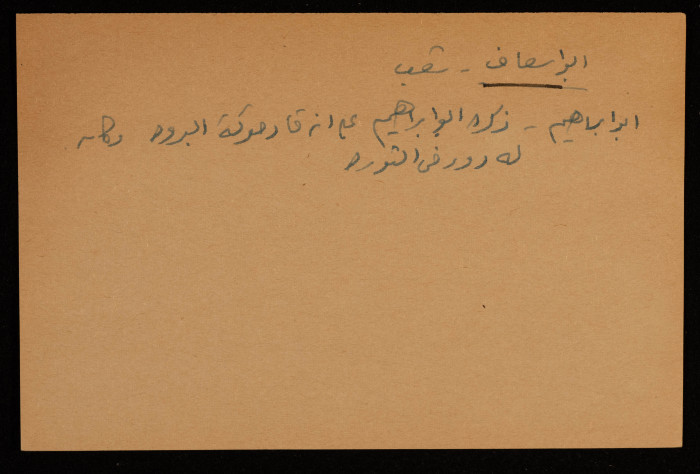 ابو اسعاف - شعب
ابو ابراهيم - ذكره ابو ابراهيم على انه قاد معركة البروه وكان
له دور في الثوره